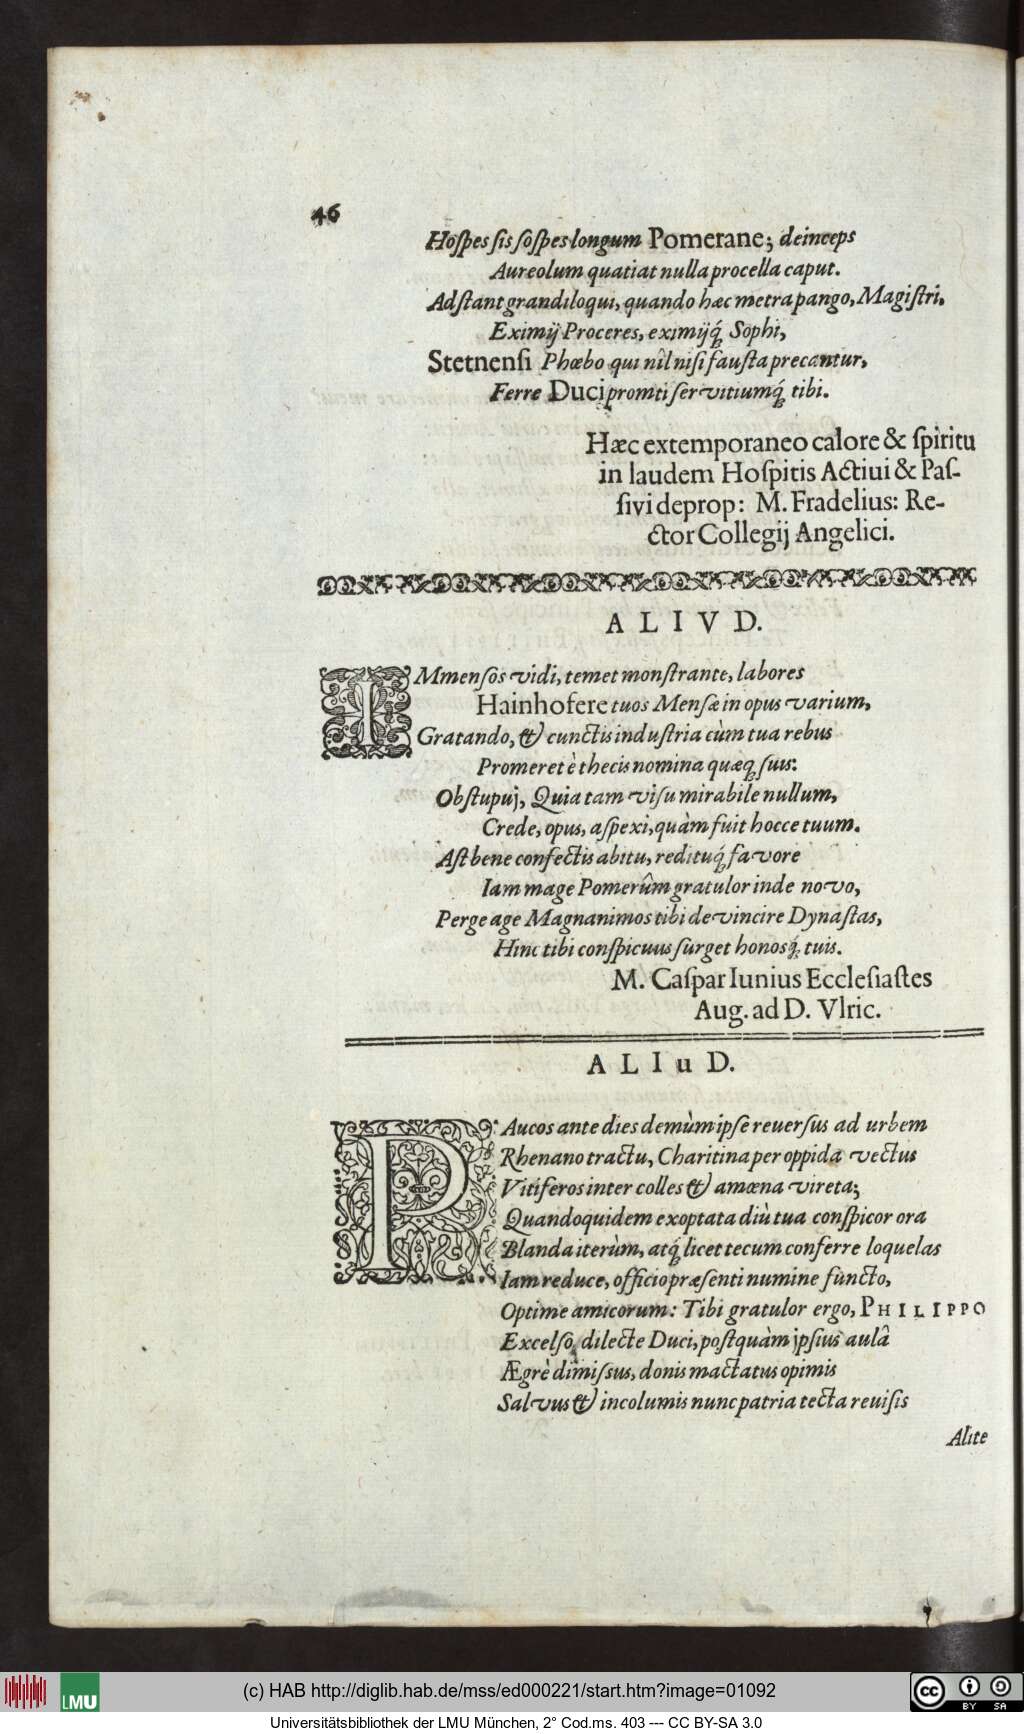 46
Hoſpes ſis ſoſpes longum Pomerane; deinceps
Aureolum quatiat nulla procella caput.
Adſtant grandiloqui, quando hæc metra pango, Magiſtri,
Eximij Proceres, eximijq́; Sophi,
Stetnenſi Phœbo qui nîl niſi fauſta precantur,
Ferre Duci promti ſervitiumq́; tibi.
Hæc extemporaneo calore & ſpiritu
in laudem Hoſpitis Actiui & Paſ-
ſivi deprop: M. Fradelius: Re-
ctor Collegij Angelici.
ALIVD.
IMmenſos vidi, temet monſtrante, labores
Hainhofere tuos Menſæ in opus varium,
Gratando, & cunctis induſtria cùm tua rebus
Promeret è thecis nomina quæq; ſuis:
Obſtupuj, Quia tam viſu mirabile nullum,
Crede, opus, aſpexi, quàm fuit hocce tuum.
Aſt bene confectis abitu, redituq́; favore
Iam mage Pomerûm gratulor inde novo,
Perge age Magnanimos tibi devincire Dynaſtas,
Hinc tibi conſpicuus ſurget honosq́; tuis.
M. Caſpar Iunius Eccleſiaſtes
Aug. ad D. Vlric.
ALIuD.
PAucos ante dies demùm ipſe reuerſus ad urbem
Rhenano tractu, Charitina per oppida vectus
Vitiferos inter colles & amœna vireta;
Quandoquidem exoptata diù tua conſpicor ora
Blanda iterùm, atq́; licet tecum conferre loquelas
Iam reduce, officio præſenti numine functo,
Optime amicorum: Tibi gratulor ergo, PHILIPPO
Excelſo dilecte Duci, poſtquàm ipſius aulâ
Ægrè dimiſsus, donis mactatus opimis
Salvus & incolumis nunc patria tecta reuiſis
Alite
LMU
(c) HAB http://diglib.hab.de/mss/ed000221/start.htm?image=01092
cc BY SA
Universitätsbibliothek der LMU München, 2° Cod.ms. 403 --- CC BY-SA 3.0